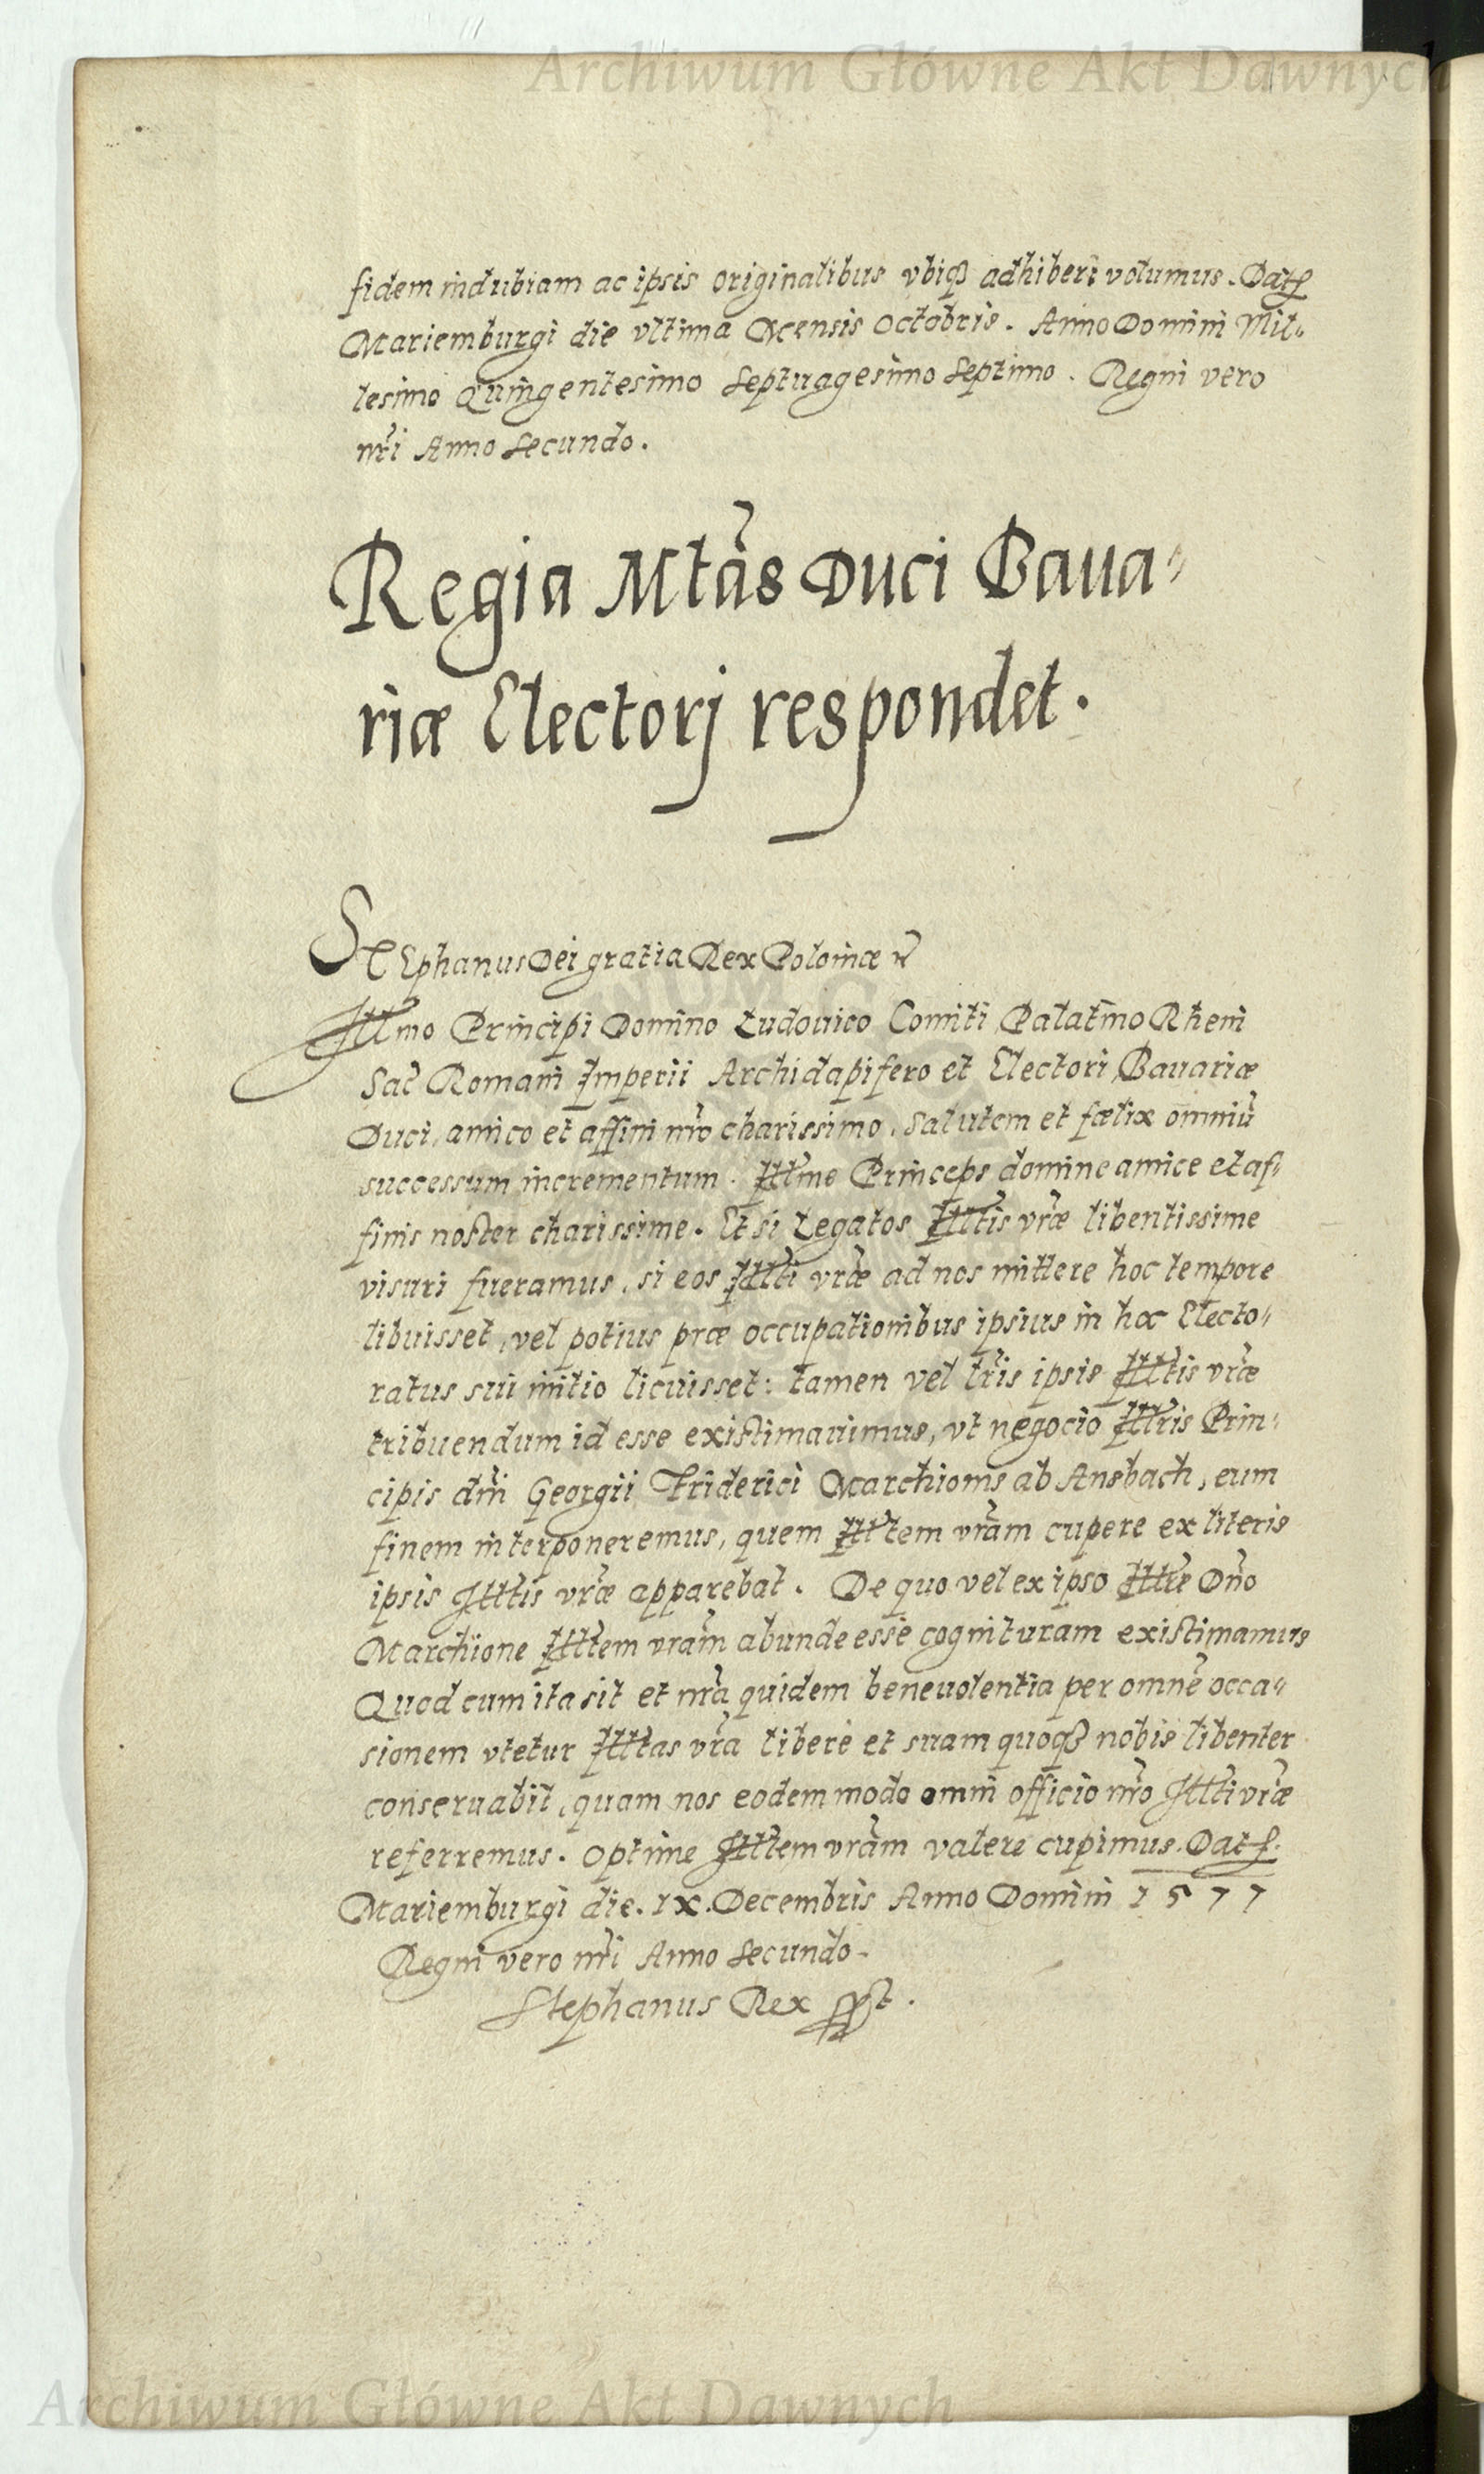 Archiwum Główne Akt Dawnych
fidem indubiam ac ipsis originalibus vbiqꝫ adhiberi volumus. Dat
Mariemburgi die vltima Mensis Octobris. Anno Domini Mil-
lesimo Quingentesimo Septuagesimo Septimo. Regni vero
nri Anno Secundo.
Regia Mtas Duci Baua-
riæ Electorj respondet.
STEphanus Dei gratia Rex Poloniæ
Illmo Principi Domino Ludouico Comiti Palatino Rheni
Sac Romani Imperii Archidapifero et Electori Bauariæ
Duci, amico et affini nro charissimo, Salutem et fælix omniū
successum incrementum. Illme Princeps domine amice et af-
finis noster charissime. Et si Legatos Illtis vræ libentissime
visuri fueramus, si eos Illti vræ ad nos mittere hoc tempore
libuisset, vel potius præ occupationibus ipsius in hoc Electo-
ratus sui initio licuisset: tamen vel lris ipsis Illtis vræ
tribuendum id esse existimauimus, vt negocio Illris Prin-
cipis dni Georgii Friderici Marchionis ab Ansbach, eum
finem interponeremus, quem Illtem vram cupere ex literis
ipsis Illtis vræ apparebat. De quo vel ex ipso Illre Dno
Marchione Illtem vram abunde esse cognituram existimamus
Quod cum ita sit et nra quidem beneuolentia per omnē occa-
sionem vtetur Illtas vra liberè et suam quoqꝫ nobis libenter
conseruabit, quam nos eodem modo omni officio nro Illti vræ
referremus. Optime Illtem vram valere cupimus. Dat
Mariemburgi die. IX. Decembris Anno Domini 1577
Regni vero nri Anno Secundo.
Stephanus Rex
Archiwum Główne Akt Dawnych